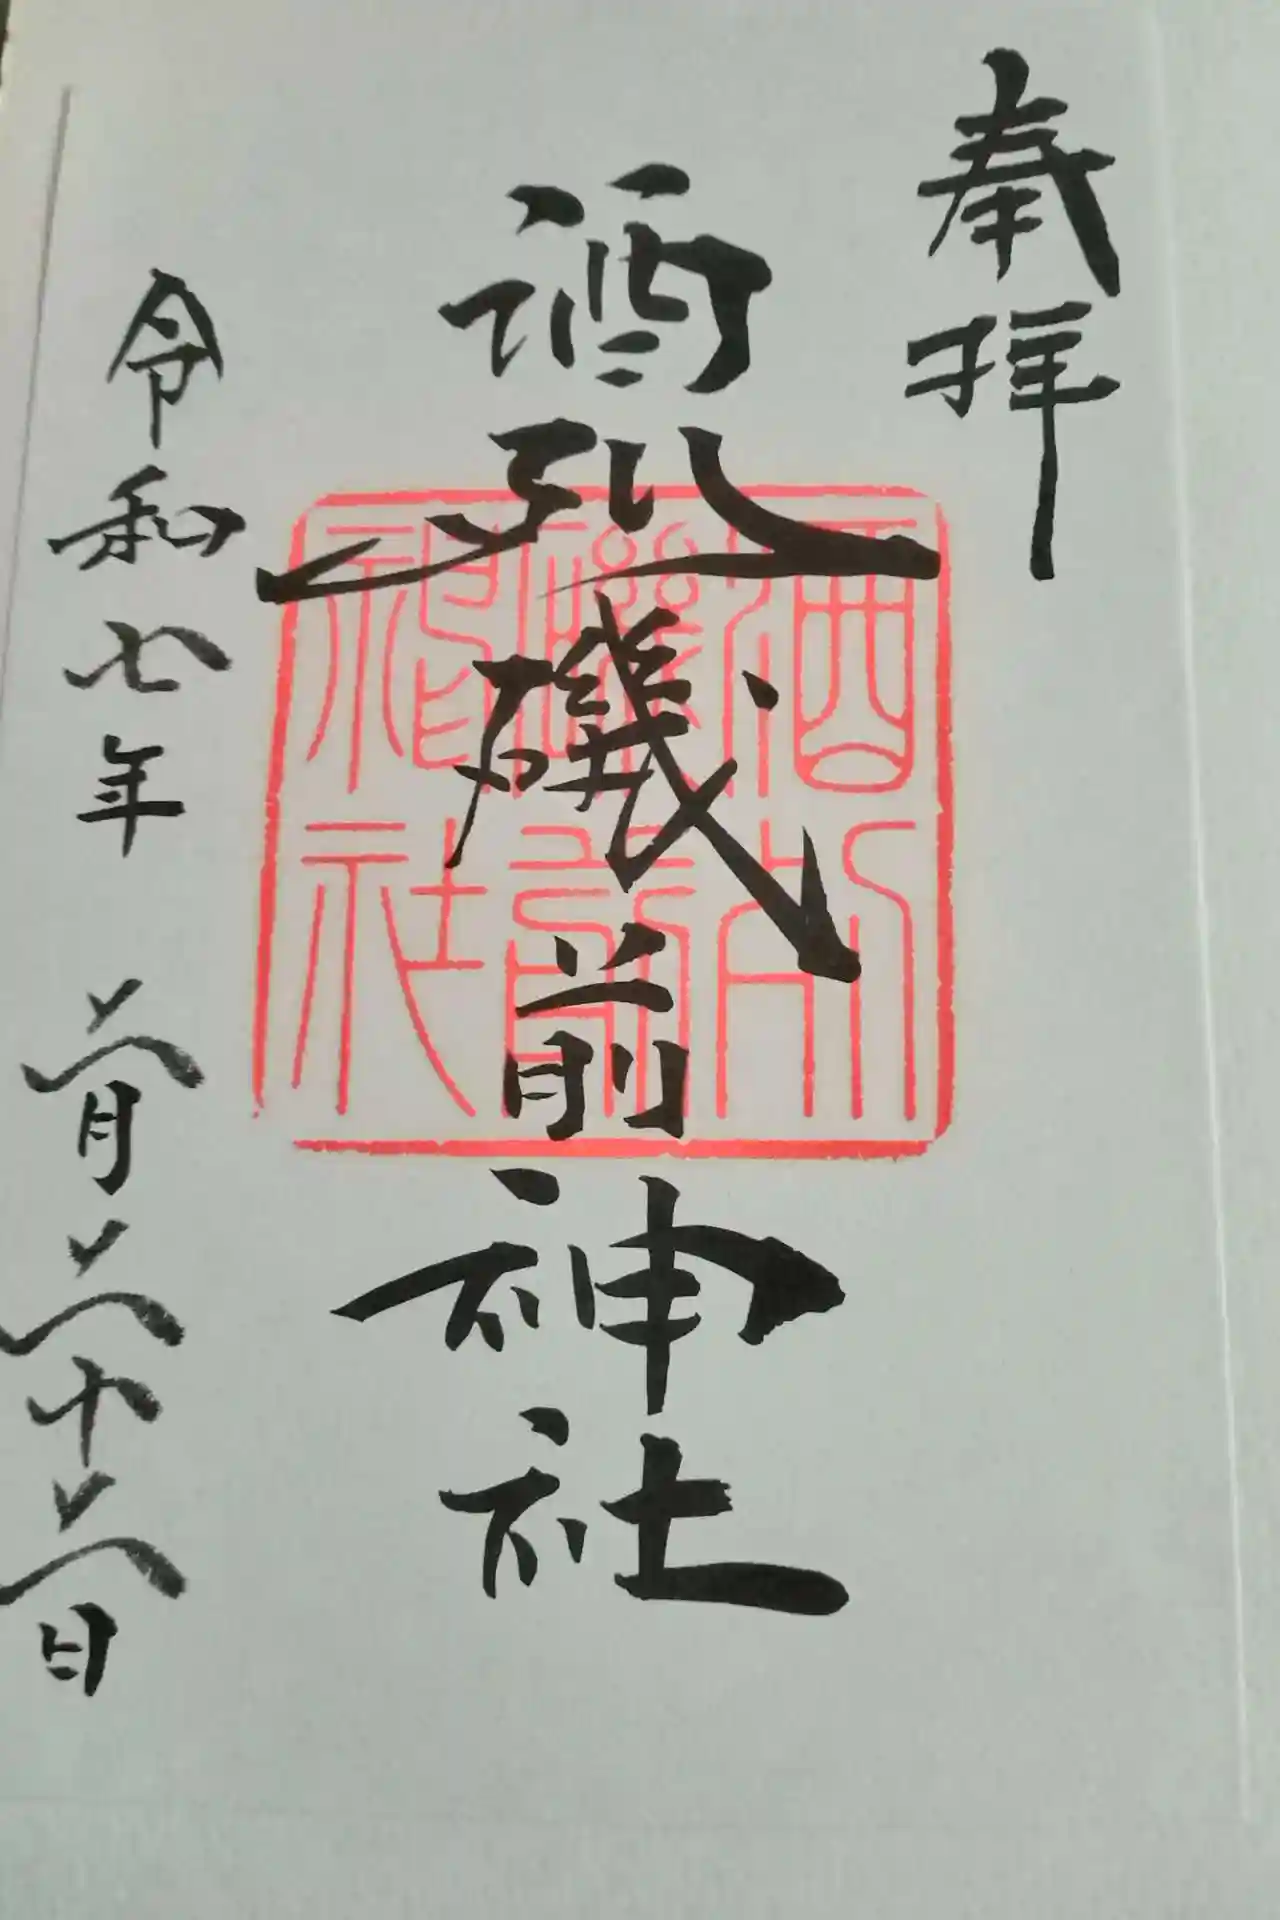 奉拝
酒列磯前神社
酒列
磯前
神社
令和七年二月二十二日